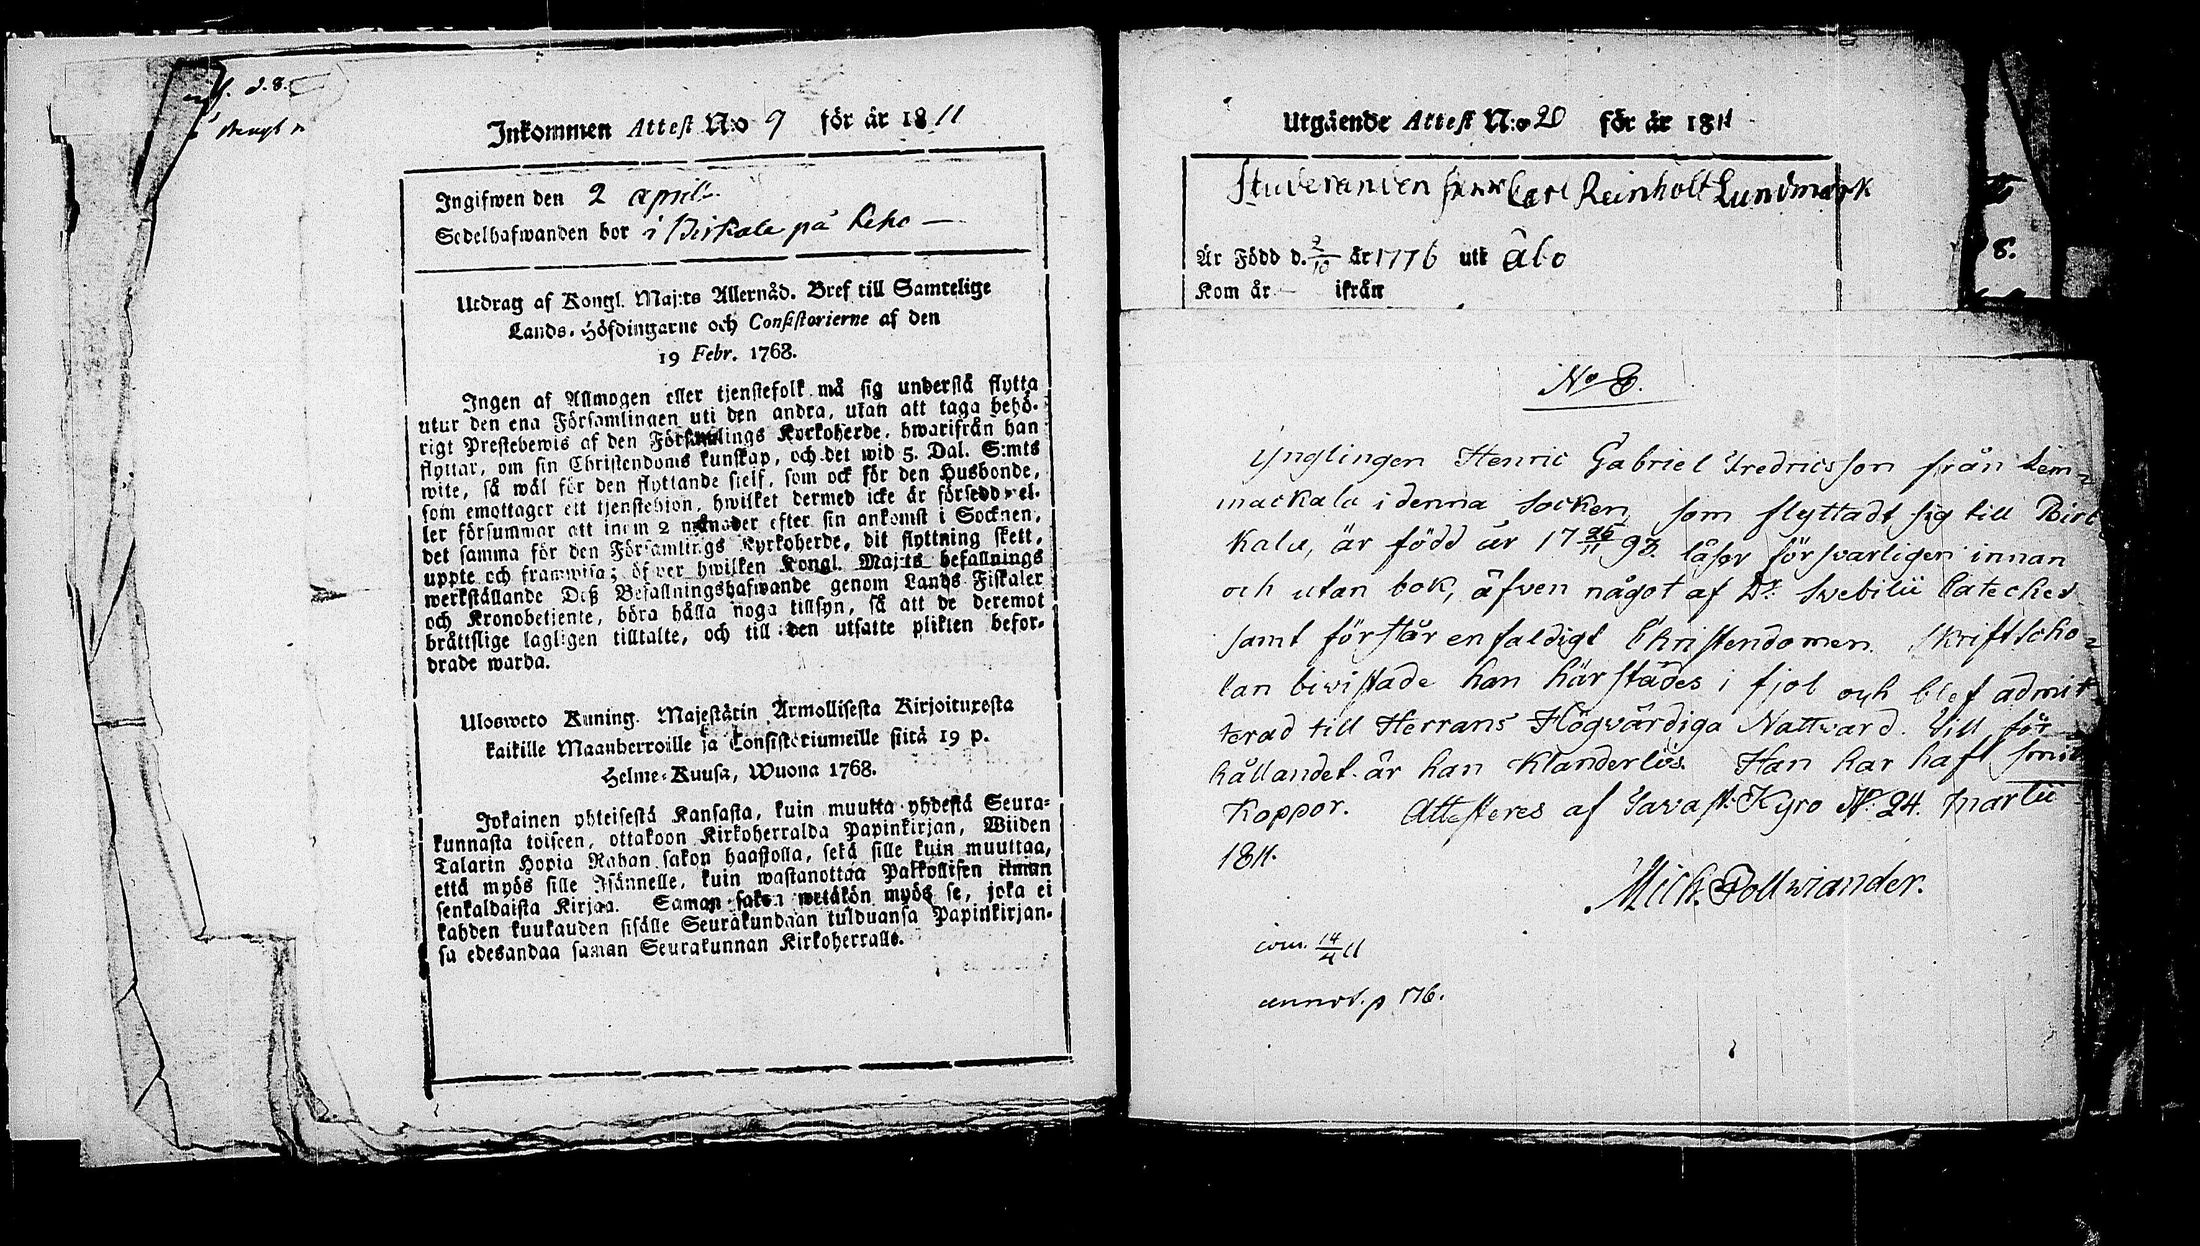 Inkommen Attest N:o 9 för år 1811
Ingifwen den 2 april
Sedelhafwanden bor i Birkala på
Utdrag af Kongl. Maj:ts Allernåd. Bref till Samtelige
Lands-Höfdingarne och Consistorierne af den
19 Febr. 1768.
Ingen af Allmogen eller tjenstefolk må sig understå flytta
utur den ena Församlingen uti den andra, utan att taga behö-
rigt Prestebewis af den Församlings Kyrkoherde, hwarifrån han
flyttar, om sin Christendoms kunskap, och det wid 5. Dal. S:mts
wite, så wäl för den flyttande sielf, som ock för den Husbonde,
som emottager ett tjenstehjon, hwilket dermed icke är försedd, el-
ler försummar att inom 2 månader efter sin ankomst i Socknen,
det samma för den Församlings Kyrkoherde, dit flyttning skett,
uppte och framwisa; öfwer hwilken Kongl. Maj:ts befallnings
werkställande Diß Befallningshafwande genom Lands Fiskaler
och Kronobetjente, böra hålla noga tillsyn, så att de deremot
bråttslige lagligen tilltalte, och till den utsatte plikten befor-
drade warda.
Ulosweto Kuning. Majestätin Armollisesta Kirjoituxesta
kaikille Maanherroille ja Consistoriumeille siitä 19 p.
Helme-Kuusa, Wuona 1768.
Jokainen yhteisestä Kansasta, kuin muutta yhdestä Seura-
kunnasta toiseen, ottakoon Kirkoherralda Papinkirjan, Wiiden
Talarin Hopia Rahan sakon haastolla, sekä sille kuin muuttaa,
että myös sille Isännelle, kuin wastanottaa Palkollisen ilman
senkaldaista Kirjaa. Saman sakon wetäkön myös se, joka ei
kahden kuukauden sisälle Seurakundaan tulduansa Papinkirjan-
sa edesandaa saman Seurakunnan Kirkoherralle.
Utgående Attest N:o 20 för år 1811
Studeranden Herr Carl Reinholt Lundmark
Är Född d. 2/10 år 1776 uti Åbo
Kom år — ifrån
8.
No 8.
Ynglingen Henric Gabriel Fredricsson från Lem-
mackala i denna socken, som flyttadt sig till Birc
kala, är född år 17 26/11 93. läser försvarligen innan
och utan bok, äfven något af Dr. Svebilii Cateches
samt förstår enfaldigt Christendomen. Skriftscho-
lan bivistade han härstädes i fjol och blef admit-
terad till Herrans Högvärdiga Nattvard. Till för-
hållandet är han klanderlös. Han har haft smit
Koppor. Attesteres af Tavast-Kyro d. 24. Martii
1811.
Mich. Pollviander.
14/4 11
annot. p 176.